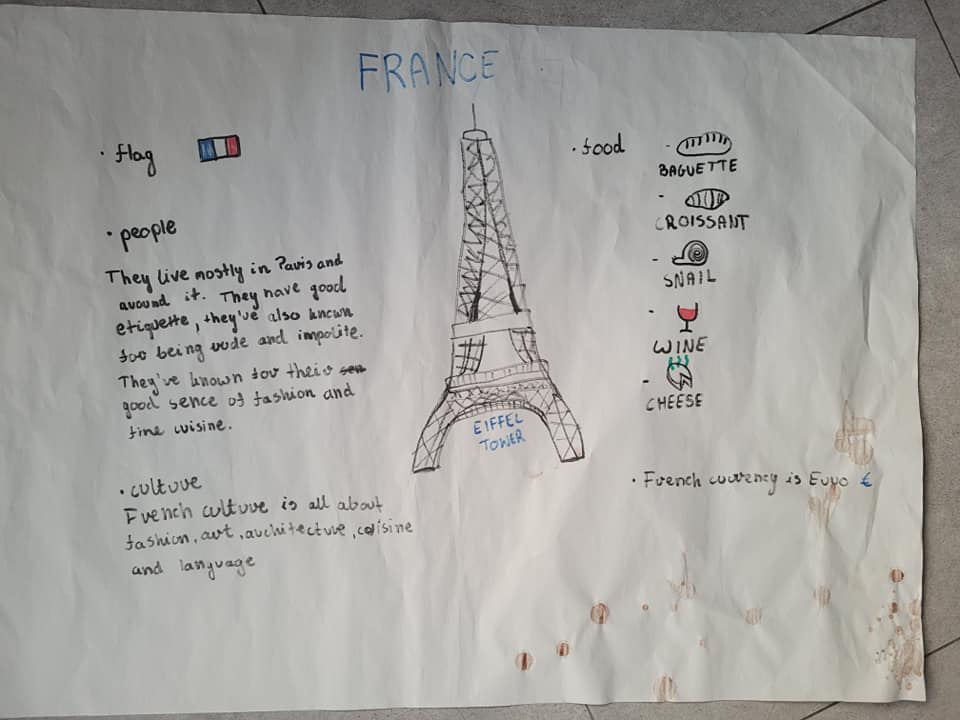 FRANCE
• flag
• people
They live mostly in Paris and
around it. They have good
etiquette, they've also known
for being rude and impolite.
They've known for their sen
good sence of fashion and
fine cuisine.
• culture
French culture is all about
fashion, art, architecture, cuisine
and language
EIFFEL
TOWER
• food
- BAGUETTE
- CROISSANT
- SNAIL
- WINE
- CHEESE
• French currency is Euro €